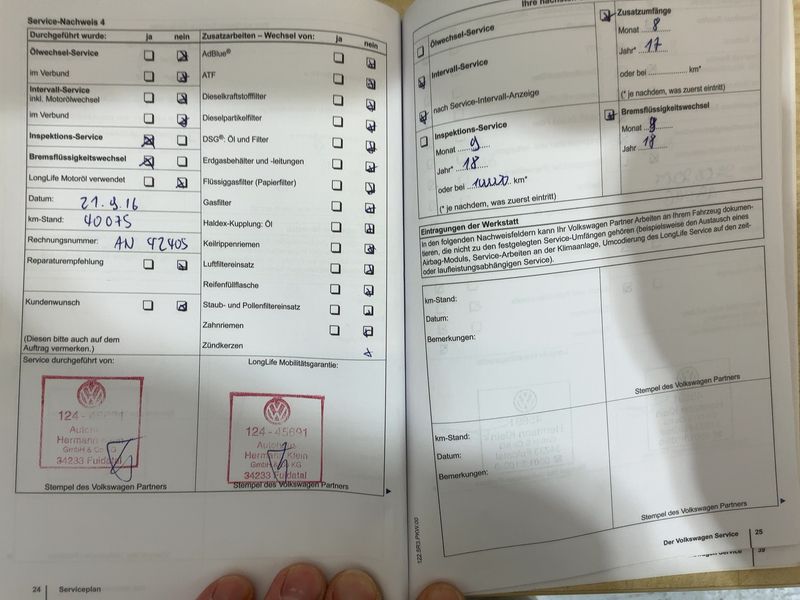 Service-Nachweis 4
Durchgeführt wurde: ja nein
Ölwechsel-Service
im Verbund
Intervall-Service
inkl. Motorölwechsel
im Verbund
Inspektions-Service
Bremsflüssigkeitswechsel
LongLife Motoröl verwendet
Datum: 21.9.16
km-Stand: 40075
Rechnungsnummer: AN 42405
Reparaturempfehlung
Kundenwunsch
(Diesen bitte auch auf dem
Auftrag vermerken.)
Service durchgeführt von:
124-45691
Hermann
GmbH & Co KG
34233 Fuldatal
Stempel des Volkswagen Partners
Zusatzarbeiten – Wechsel von: ja nein
AdBlue®
ATF
Dieselkraftstofffilter
Dieselpartikelfilter
DSG®: Öl und Filter
Erdgasbehälter und -leitungen
Flüssiggasfilter (Papierfilter)
Gasfilter
Haldex-Kupplung: Öl
Keilrippenriemen
Luftfiltereinsatz
Reifenfüllflasche
Staub- und Pollenfiltereinsatz
Zahnriemen
Zündkerzen
LongLife Mobilitätsgarantie:
124-45691
Autohaus
Hermann Klein
GmbH & Co KG
34233 Fuldatal
Stempel des Volkswagen Partners
24 Serviceplan
Ölwechsel-Service
Intervall-Service
nach Service-Intervall-Anzeige
Inspektions-Service
Monat 9
Jahr* 18
oder bei km*
(* je nachdem, was zuerst eintritt)
Zusatzumfänge
Monat 8
Jahr* 17
oder bei ............... km*
(* je nachdem, was zuerst eintritt)
Bremsflüssigkeitswechsel
Monat 9
Jahr 18
Eintragungen der Werkstatt
In den folgenden Nachweisfeldern kann Ihr Volkswagen Partner Arbeiten an Ihrem Fahrzeug dokumen-
tieren, die nicht zu den festgelegten Service-Umfängen gehören (beispielsweise den Austausch eines
Airbag-Moduls, Service-Arbeiten an der Klimaanlage, Umcodierung des LongLife Service auf den zeit-
oder laufleistungsabhängigen Service).
km-Stand:
Datum:
Bemerkungen:
Stempel des Volkswagen Partners
km-Stand:
Datum:
Bemerkungen:
Stempel des Volkswagen Partners
122.5R3.PKW.00
Der Volkswagen Service 25